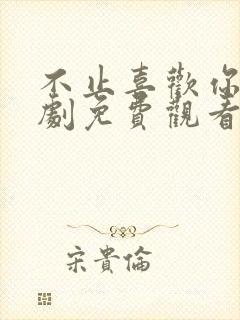 不止喜歡你
劇免費觀看
宋貴倫